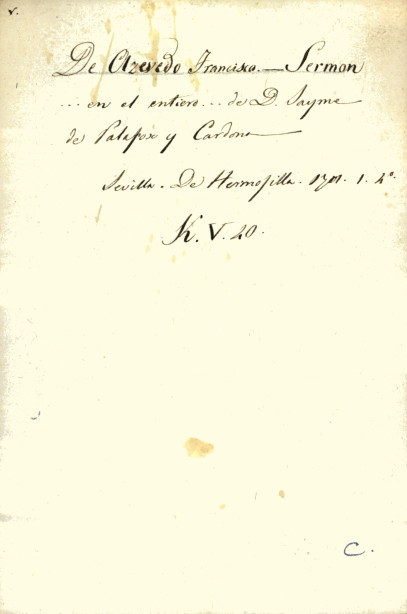 v.
De Azevedo Francisco. — Sermon
... en el entiero... de D. Jayme
de Palafox y Cardona
Sevilla. De Hermosilla. 1701. 1. 4º.
K. V. 40.
C.